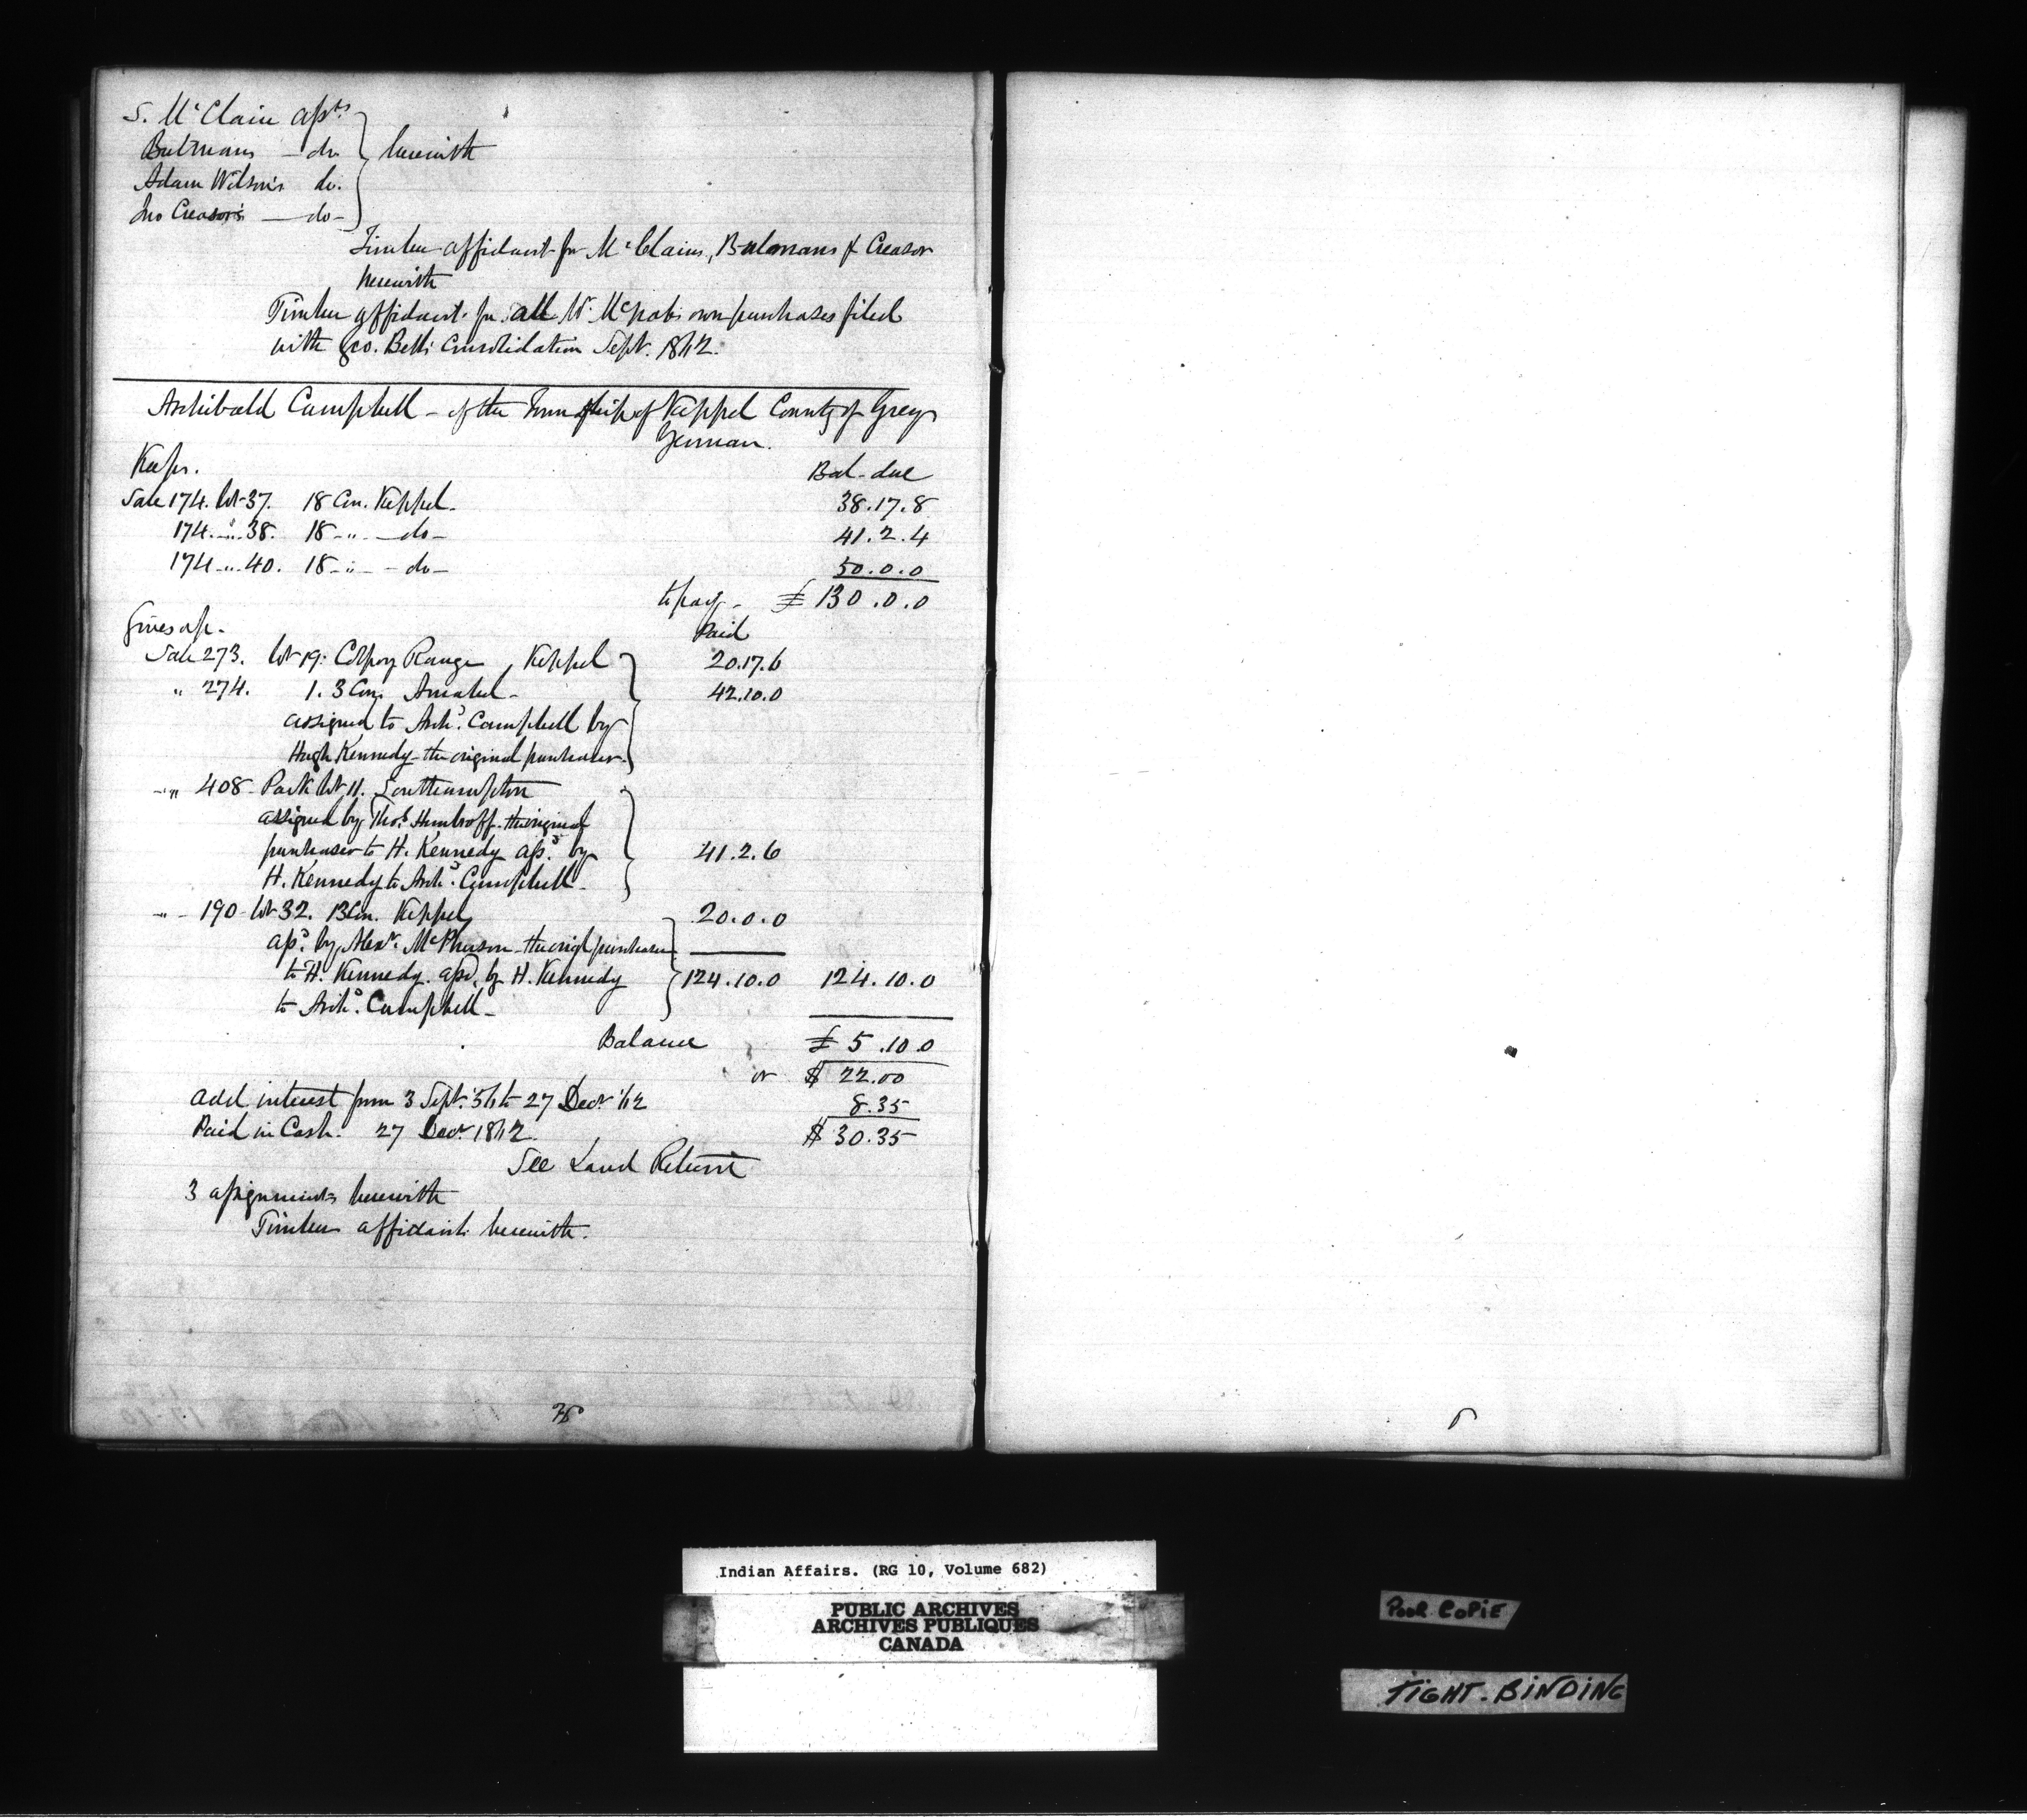 S. McClain asst.
Bulmans — do } herewith
Adam Wilson's do.
Jno Creasor's — do —
Timber affidavit for McClains, Bulmans & Creasor
herewith
Timber affidavit for all W. McNabs own purchases filed
with Geo. Bell's Consolidation Sept. 1862.
Archibald Campbell - of the Township of Keppel County of Grey
Yeoman.
Keeps.
Bal. due
Sale 174. lot 37. 18 Con. Keppel. 38.17.8
174. " 38. 18 - " - do - 41.2.4
174 - " 40. 18 - " - do - 50.0.0
to pay - £ 130.0.0
Gives up - Paid
Sale 273. lot 19: Colpoy Range, Keppel 20.17.6
" 274. 1. 3 Con. Amabel - 42.10.0
assigned to Archd. Campbell by
Hugh Kennedy the original purchaser.
" 408 - Park lot 11. Southampton
assigned by Thos. the original
purchaser to H. Kennedy assd. by 41.2.6
H. Kennedy to Archd. Campbell -
" - 190 - lot 32. 13 Con. Keppel 20.0.0
assd. by Alexr. McPherson - the origl purchaser
to H. Kennedy. assd. by H. Kennedy 124.10.0 124.10.0
to Archd. Campbell -
Balance £ 5.10.0
or $ 22.00
add interest from 3 Sept. 56 to 27 Decr. '62 8.35
Paid in Cash. 27 Decr. 1862. $ 30.35
See Land Return
3 assignments herewith
Timber affidavit herewith.
Indian Affairs. (RG 10, Volume 682)
PUBLIC ARCHIVES
ARCHIVES PUBLIQUES
CANADA
POOR COPIE
TIGHT-BINDING